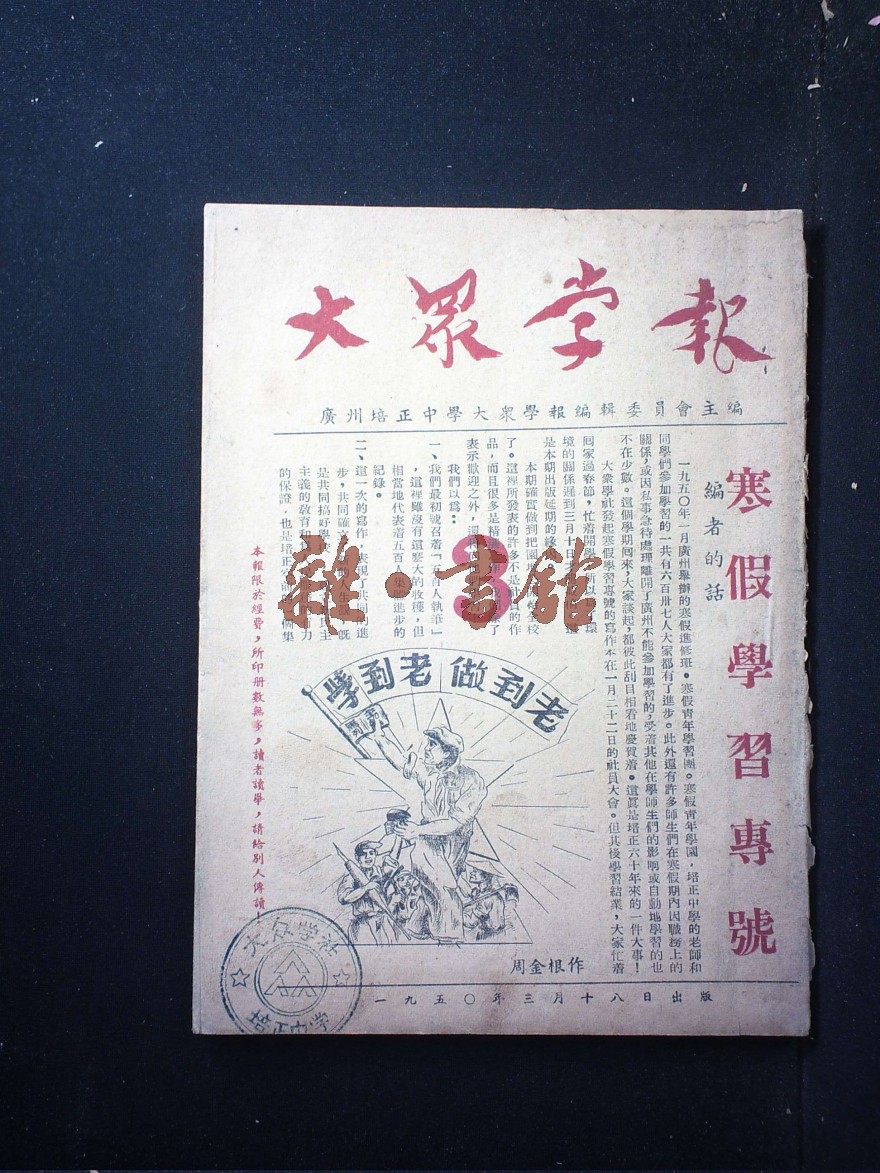 大眾学報
廣州培正中學大衆學報編輯委員會主編
寒假學習專號
編者的話
一九五〇年一月廣州舉辦的寒假進修班。寒假青年學習團。寒假青年學園,培正中學的老師和
同學們參加學習的一共有六百卅七人大家都有了進步。此外還有許多師生們在寒假期內因職務上的
關係,或因私事急待處理離開了廣州不能參加學習的,受着其他在學師生們的影响或自動地學習的也
不在少數。這個學期囘來,大家談起,都彼此刮目相看地慶賀着。這眞是培正六十年來的一件大事!
大衆學社發起寒假學習專號的寫作本在一月二十二日的社員大會。但其後學習結業,大家忙着
囘家過春節,忙着開學 所以 環
境的關係遲到三月十日才
是本期出版延期的緣
本期確實做到把園地 全校
了。這裡所發表的許多不是社員的作
品,而且很多是精
表示歡迎之外,還
我們以爲:
一、我們最初號召着「五百人執筆」
,這裡雖沒有這麽大的收穫,但
相當地代表着五百人集體進步的
記錄。
二、這一次的寫作,表現了共同的進
步,共同確立
是共同搞好學
主義的敎育和
的保證,也是培正
3
雜·書館
學到老 做到老
周金根作
本報限於經費,所印册數無多,讀者讀畢,請給別人傳讀!
大众学社
培正中学
一九五〇年三月十八日出版